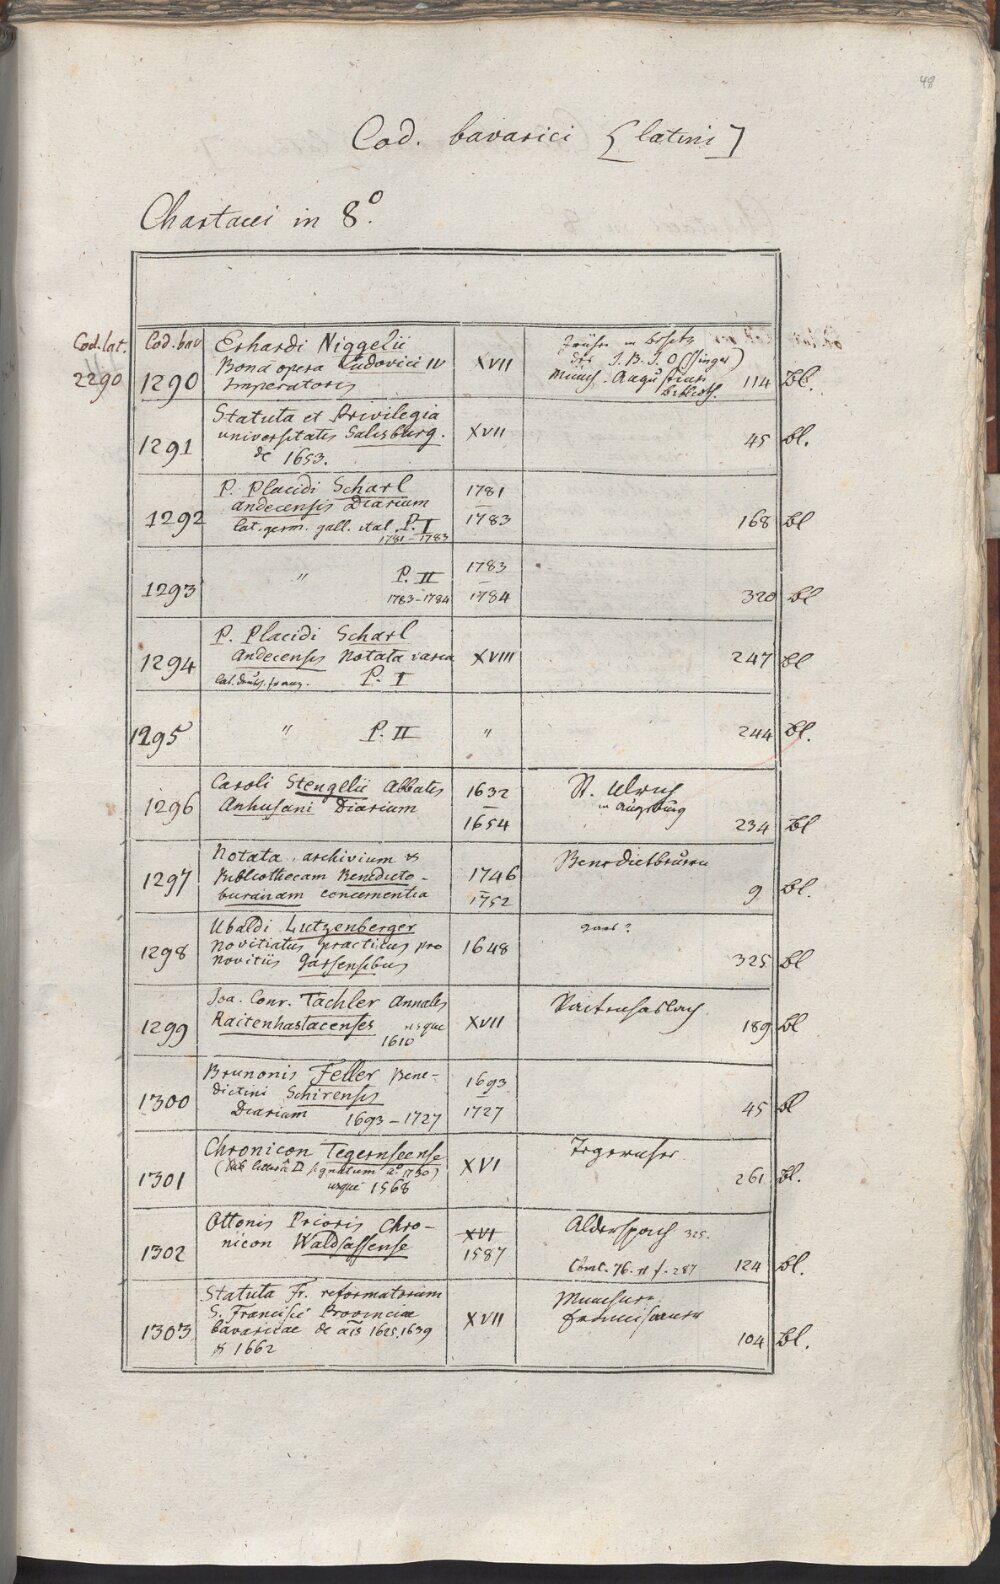 48
Cod. bavarici [latini]
Chartacei in 8°.
Cod. lat.
2290
Cod. bav
1290
Erhardi Niggelii
Bona opera Ludovici IV
Imperatoris
XVII
Früher in Besitz
des J. B. J. O
Münch. Augustiner
Biblioth.
114 Bl.
1291
Statuta et Privilegia
universitatis Salisburg.
de 1653.
XVII
45 Bl.
1292
P. Placidi Scharl
Andecensis Diarium
lat. germ. gall. ital. P. I
1781-1783
1781
–
1783
168 Bl
1293
"
P. II
1783-1784
1783
–
1784
320 Bl
1294
P. Placidi Scharl
Andecensis Notata varia
P. I
XVIII
247 Bl
1295
"
P. II
"
244 Bl.
1296
Caroli Stengelii Abbatis
Anhusani Diarium
1632
–
1654
St. Ulrich
in Augsburg
234 Bl
1297
Notata archivium &
Bibliothecam Benedicto-
buranam concernentia
1746
–
1752
Benedictbeuern
9 Bl.
1298
Ubaldi Lutzenberger
Novitiatus practicus pro
novitiis Garsensibus
1648
Gars?
325 Bl
1299
Joa. Conr. Tachler Annales
Raitenhaslacenses usque
1610
XVII
Raitenhaslach
189 Bl
1300
Brunonis Feller Bene-
dictini Schirensis
Diarium 1693-1727
1693
–
1727
45 Bl
1301
Chronicon Tegernseense
(sub litterâ D signatum aº 1730)
usque 1568
XVI
Tegernsee
261 Bl.
1302
Ottonis Prioris Chro-
nicon Waldsassense
XVI
1587
Alderspach 325.
124 Bl.
1303
Statuta Fr. reformatorum
S. Francisci Provinciae
bavaricae de ais 1625. 1639
& 1662
XVII
Münchner
Franciscaner
104 Bl.